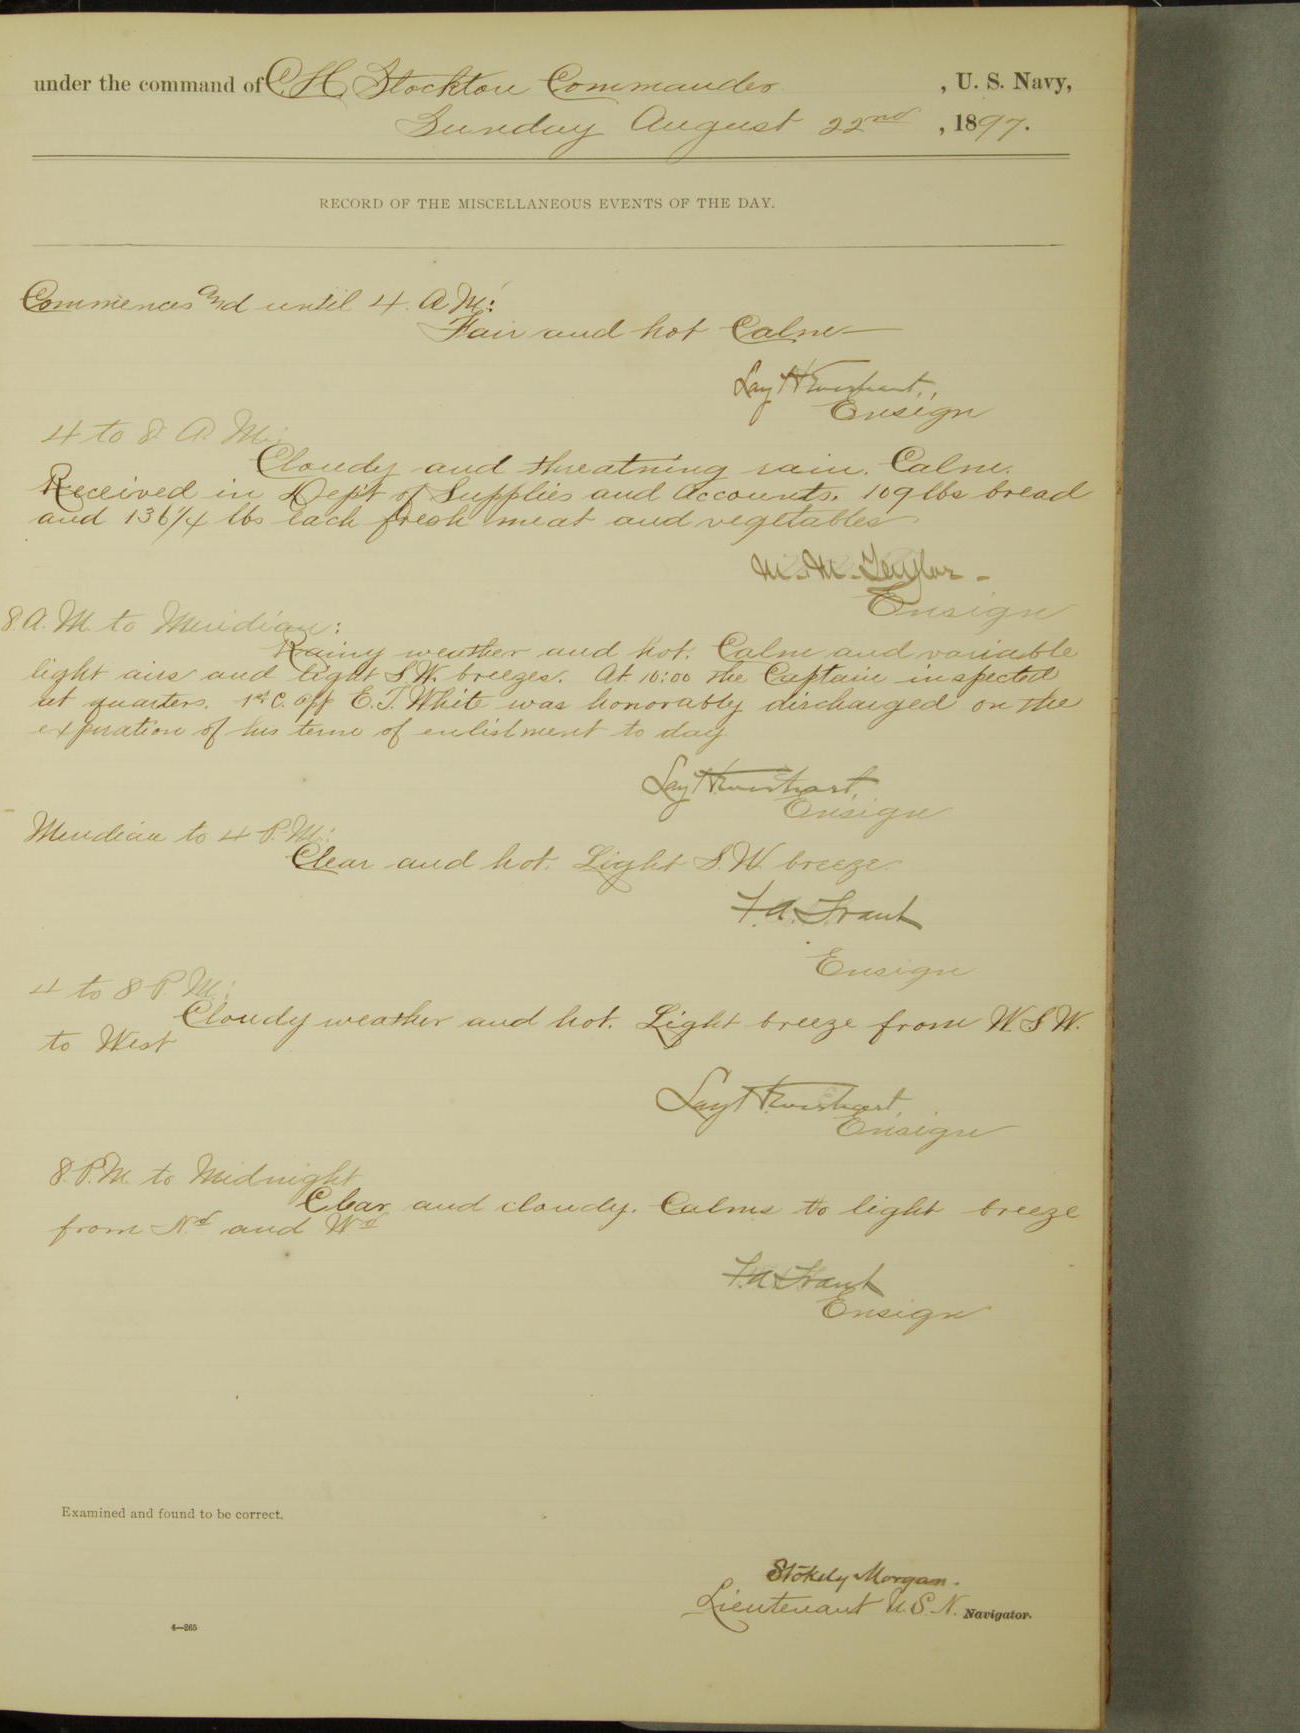 under the command of C. H. Stockton Commander, U. S. Navy,
Sunday August 22nd, 1897.
RECORD OF THE MISCELLANEOUS EVENTS OF THE DAY.
Commences and until 4. A.M.:
Fair and hot Calm
Lay H Everhart,
Ensign
4 to 8 A. M.:
Cloudy and threatning rain. Calm.
Received in Dep't of Supplies and Accounts. 109 lbs bread
and 136 1/4 lbs each fresh meat and vegetables
M. M. Taylor -
Ensign
8 A. M. to Meridian:
Rainy weather and hot. Calm and variable
light airs and light S.W. breezes. At 10:00 the Captain inspected
at quarters. 1st C. app E. T. White was honorably discharged on the
expiration of his term of enlistment to day
Lay H Everhart,
Ensign
Meridian to 4 P. M.:
Clear and hot. Light S. W. breeze.
F. A. Traut
Ensign
4 to 8 P. M.:
Cloudy weather and hot. Light breeze from W. S W.
to West
Lay H Everhart,
Ensign
8. P.M. to Midnight
Clear and cloudy. Calms to light breeze
from Nd and Wd
F. A. Traut
Ensign
Examined and found to be correct.
Stokely Morgan.
Lieutenant U. S. N. Navigator.
4—265